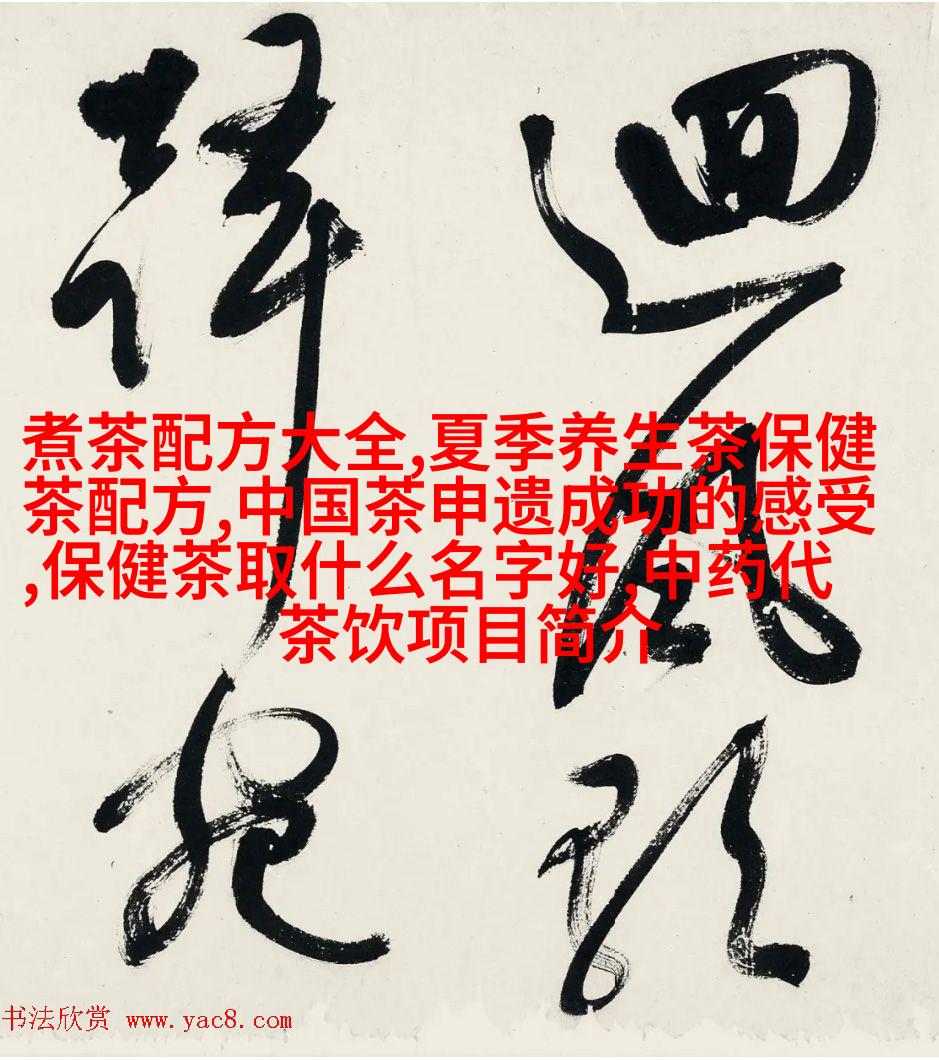 迴風
煮茶配方大全,夏季养生茶保健
茶配方,中国茶申遗成功的感受
,保健茶取什么名字好,中药代
茶饮项目简介
书法欣赏 www.yac8.com